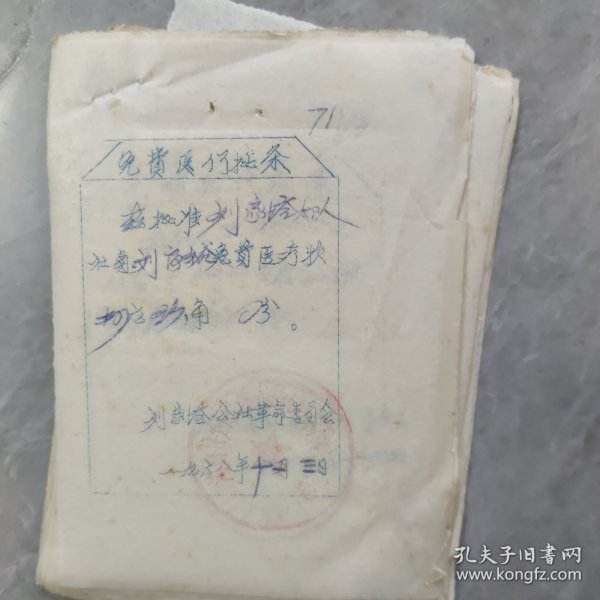 71
免费医疗批条
兹批准刘家塔大队
社员刘存城免费医疗救
元玖角 分。
刘家塔公社革命委员会
一九六八年十一月三日
孔夫子旧书网
www.kongfz.com